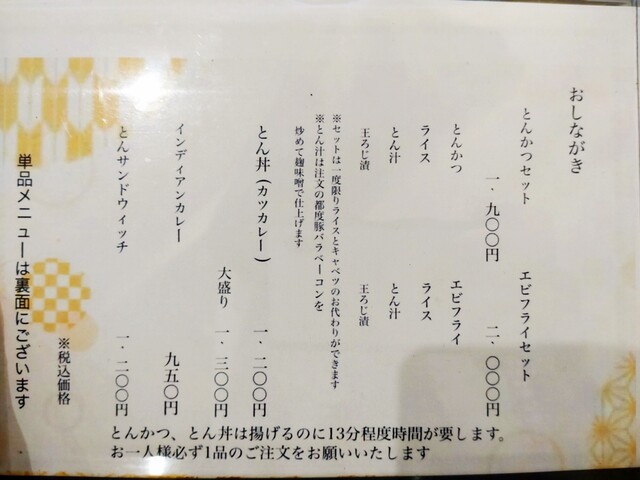 おしながき
とんかつセット
一、九〇〇円
とんかつ
ライス
とん汁
王ろじ漬
エビフライセット
二、〇〇〇円
エビフライ
ライス
とん汁
王ろじ漬
※セットは一度限りライスとキャベツのお代わりができます
※とん汁は注文の都度豚バラベーコンを
炒めて麹味噌で仕上げます
とん丼(カツカレー) 一、二〇〇円
大盛り 一、三〇〇円
インディアンカレー 九五〇円
とんサンドウィッチ 一、二〇〇円
※税込価格
単品メニューは裏面にございます
とんかつ、とん丼は揚げるのに13分程度時間が要します。
お一人様必ず1品のご注文をお願いいたします